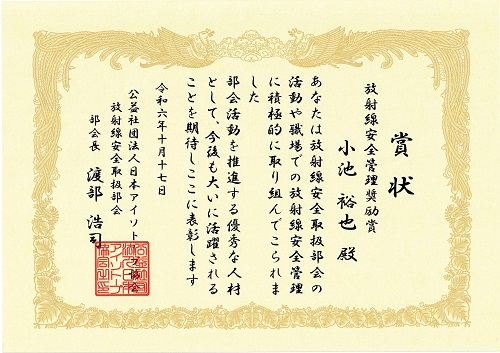 賞状
放射線安全管理奨励賞
小池 裕也 殿
あなたは放射線安全取扱部会の
活動や職場での放射線安全管理
に積極的に取り組んでこられま
した
部会活動を推進する優秀な人材
として、今後も大いに活躍される
ことを期待しここに表彰します
令和六年十月十七日
公益社団法人日本アイソトープ協会
放射線安全取扱部会
部会長 渡部 浩司